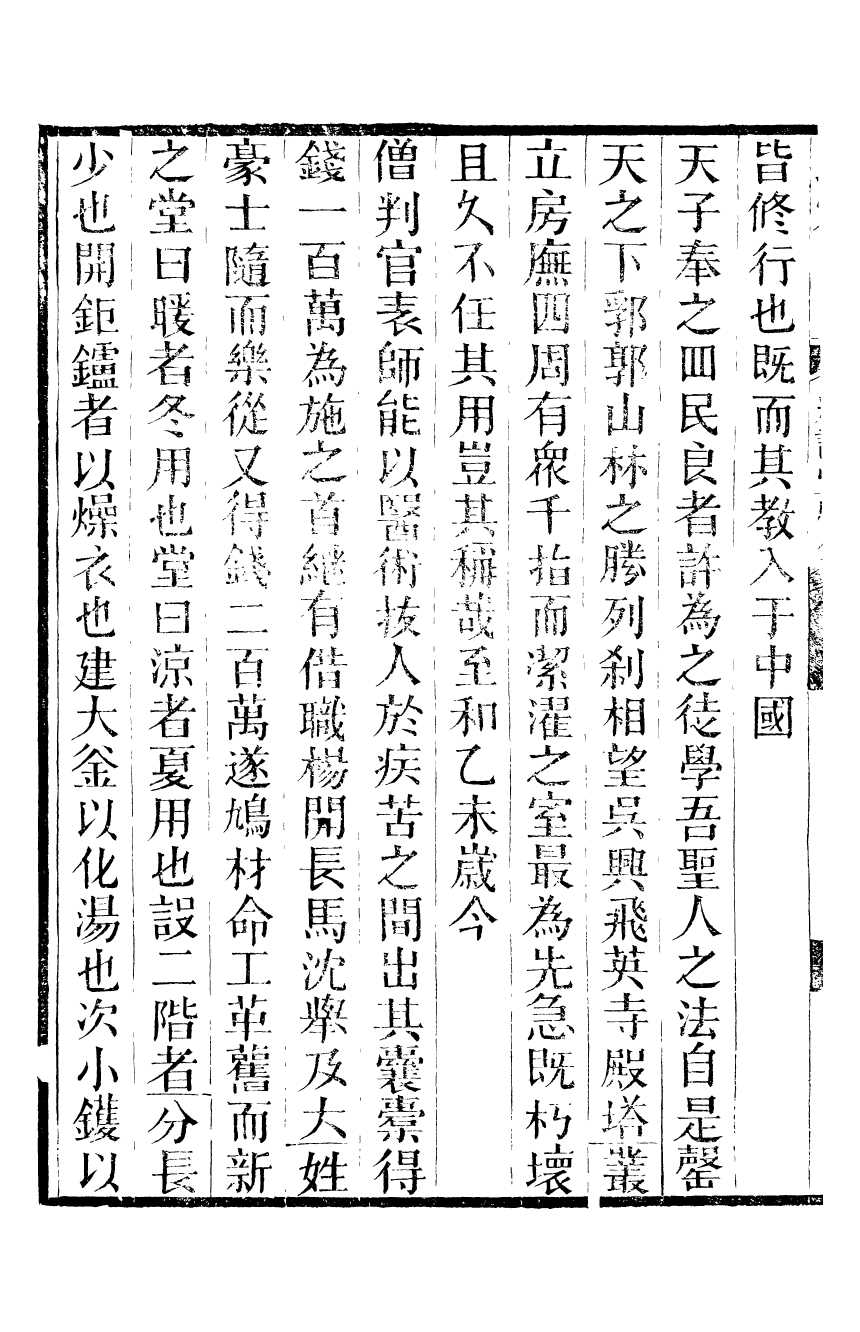 皆修行也既而其教入于中國
天子奉之四民良者許為之徒學吾聖人之法自是罄
天之下郛郭山林之勝列刹相望吳興飛英寺殿塔叢
立房廡四周有衆千指而潔濯之室最為先急既朽壞
且久不任其用豈其稱哉至和乙未歲今
僧判官表師能以醫術拔人於疾苦之間出其囊橐得
錢一百萬為施之首繼有偕職楊開長馬沈舉及大姓
豪士隨而樂從又得錢二百萬遂鳩材命工革舊而新
之堂曰暖者冬用也堂曰涼者夏用也設二階者分長
少也開鉅鑪者以燥衣也建大釜以化湯也次小鑊以